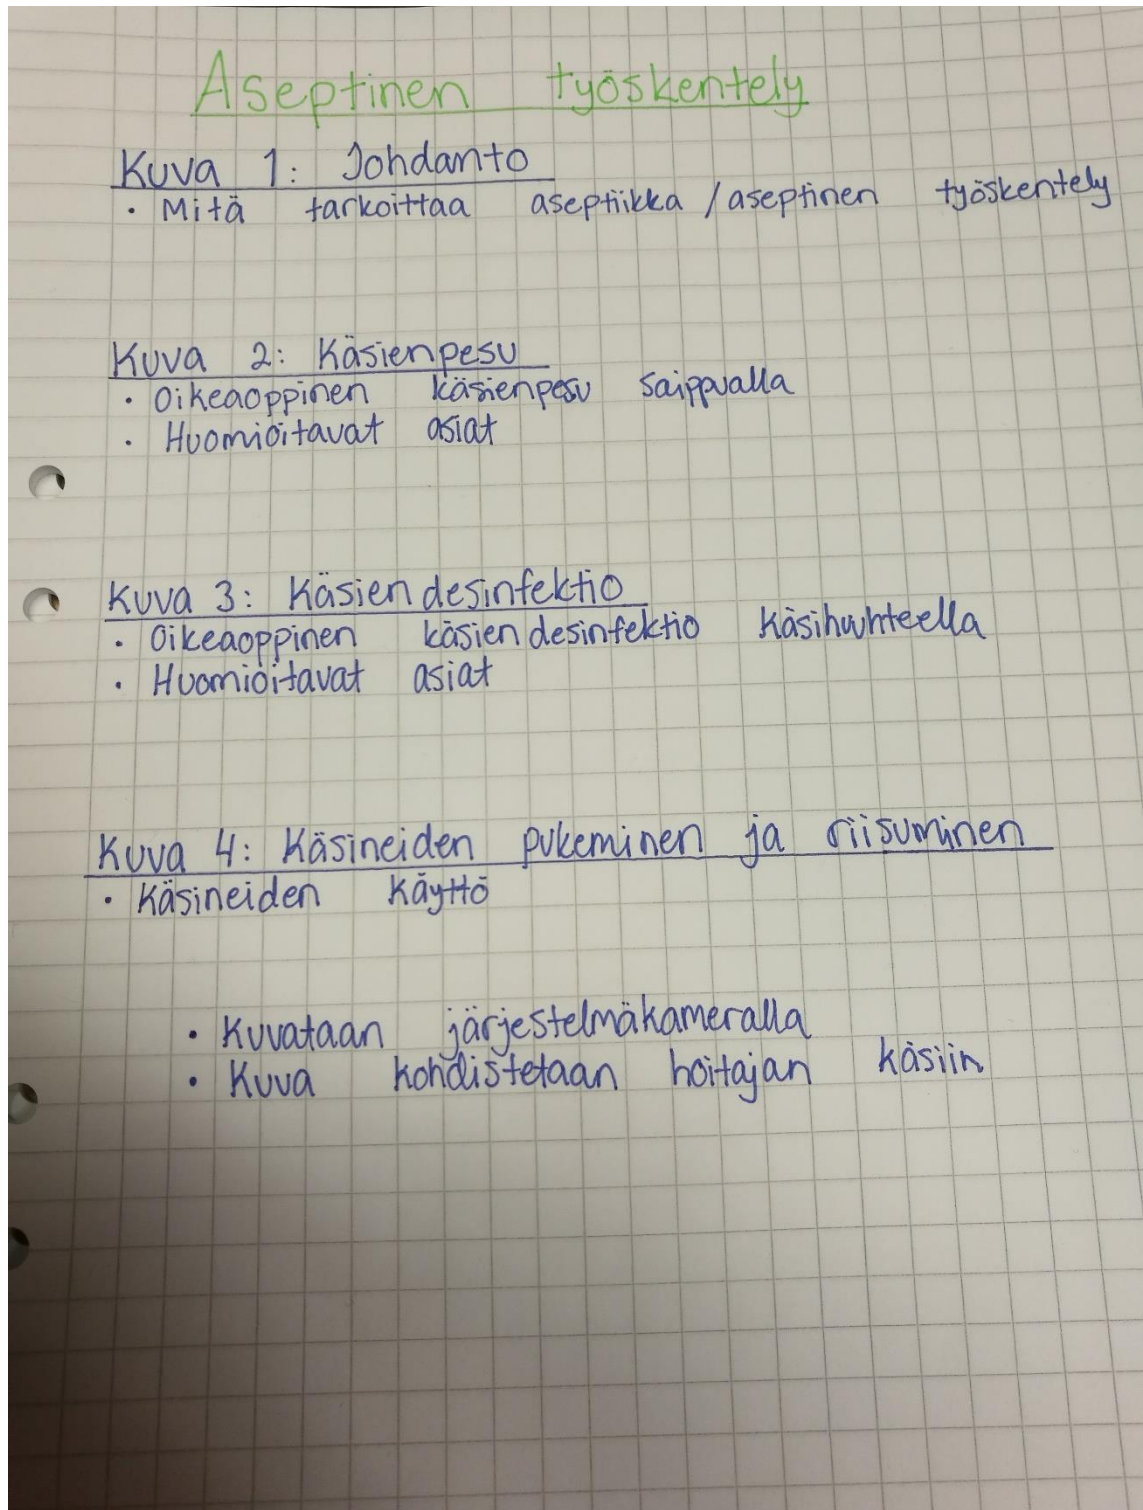 Aseptinen työskentely
Kuva 1: Johdanto
• Mitä tarkoittaa aseptiikka / aseptinen työskentely
Kuva 2: Käsienpesu
• Oikeaoppinen käsienpesu saippualla
• Huomioitavat asiat
Kuva 3: Käsien desinfektio
• Oikeaoppinen käsien desinfektio käsihuuhteella
• Huomioitavat asiat
Kuva 4: Käsineiden pukeminen ja riisuminen
• Käsineiden käyttö
• Kuvataan järjestelmäkameralla
• Kuva kohdistetaan hoitajan käsiin